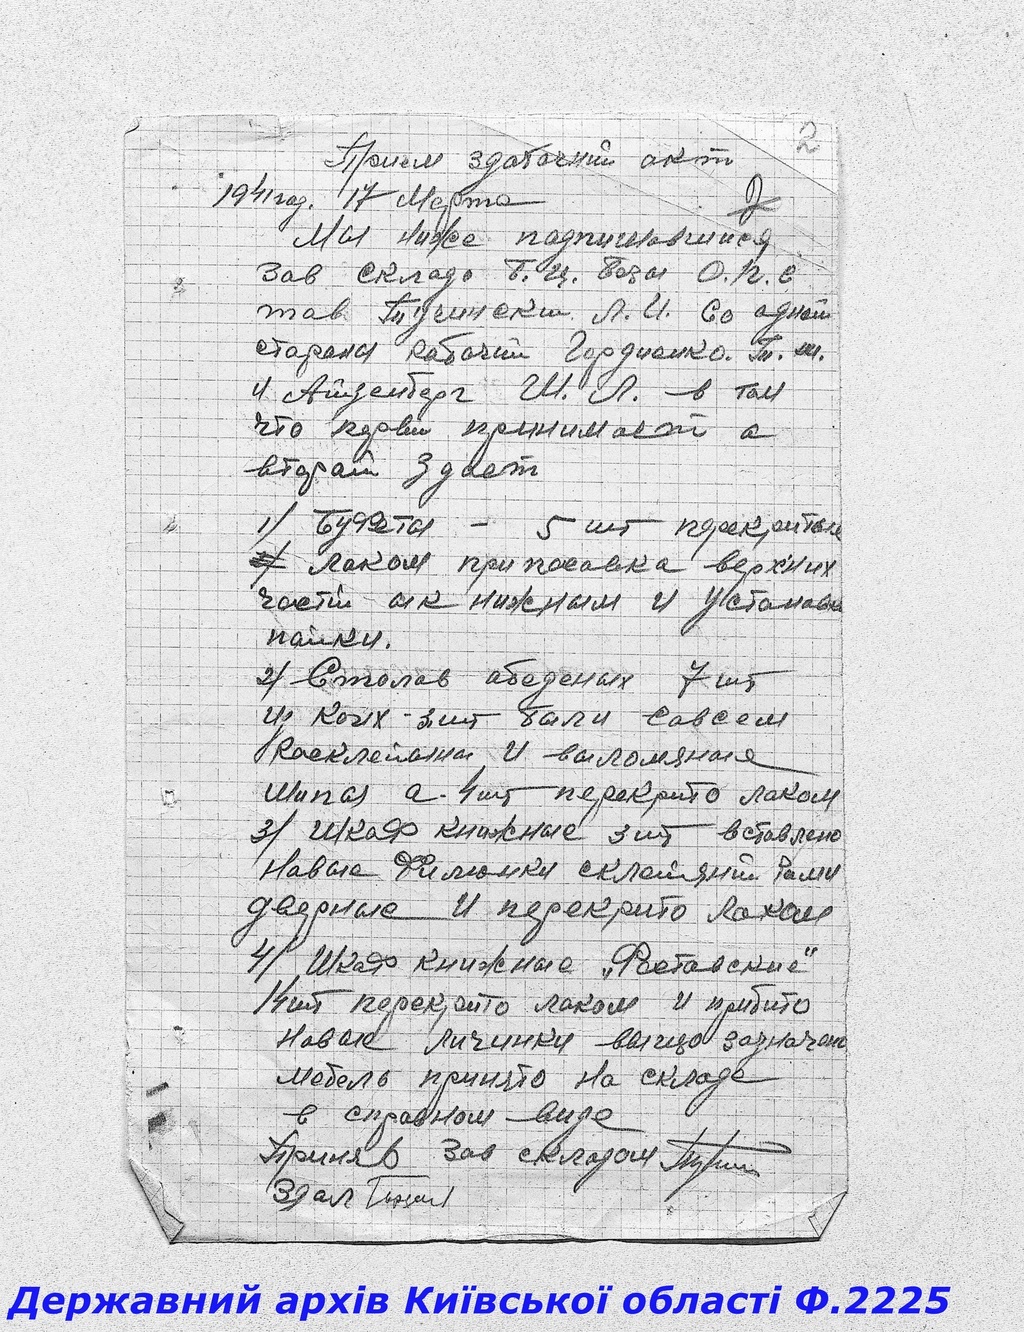 2
Прием здаточний акт
1941 год. 17 Марта
Мы ниже подписавшися
Зав склада Т. Ц. Базы О.П.С
тов Тучински Л. И. Со адной
стораны рабочий Гордиенко. Т. Ш.
и Айзенберг Ш. Л. в том
что первы принимает а
второй Здает
1/ Буфеты - 5 шт перекрытые
лаком припосавка верхних
частй ык нижным и установка
пайки.
2/ Столов абеденых 7 шт
из коих 3 шт были Савсем
Расклейаны и выломаные
Шипы а 4 шт перекрито лаком
3/ Шкаф книжные 3 шт вставлено
Навые Филюнки склейяний Рами
дверные и перекрито лаком
4/ Шкаф книжные „Роставские"
14 шт перекрито лаком и прибито
Навые личинки выщо зазначено
мебель принято на складе
в справном виде
Приняв Зав складом
Здал
Державний архів Київської області Ф.2225